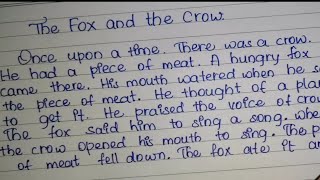 The Fox and the Crow
Once upon a time. There was a crow.
He had a piece of meat. A hungry fox
came there. His mouth watered when he s
the piece of meat. He thought of a plan
to get it. He praised the voice of crow
The fox said him to sing a song. whe
the crow opened his mouth to sing. The p
of meat fell down. The fox ate it an